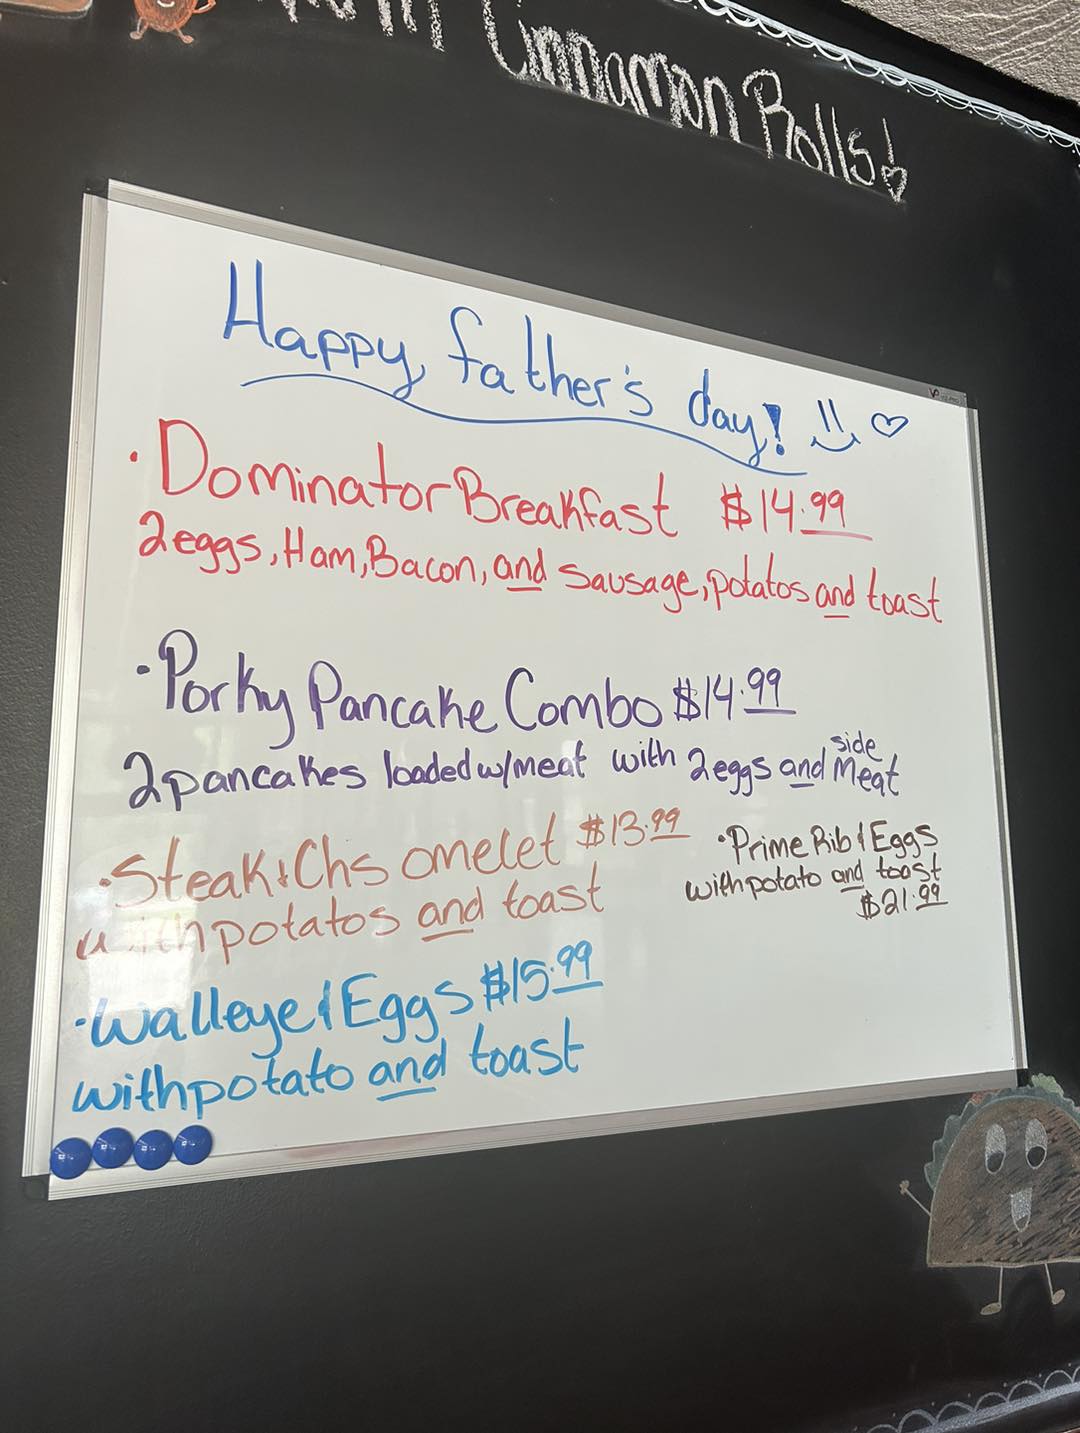 Cinnamon Rolls!
Happy father's day!
· Dominator Breakfast $14.99
2 eggs, Ham, Bacon, and sausage, potatos and toast
· Porky Pancake Combo $14.99
2 pancakes loaded w/meat with 2 eggs and side meat
· Steak & Chs omelet $13.99
with potatos and toast
· Prime Rib & Eggs
with potato and toast
$21.99
· Walleye & Eggs $15.99
with potato and toast